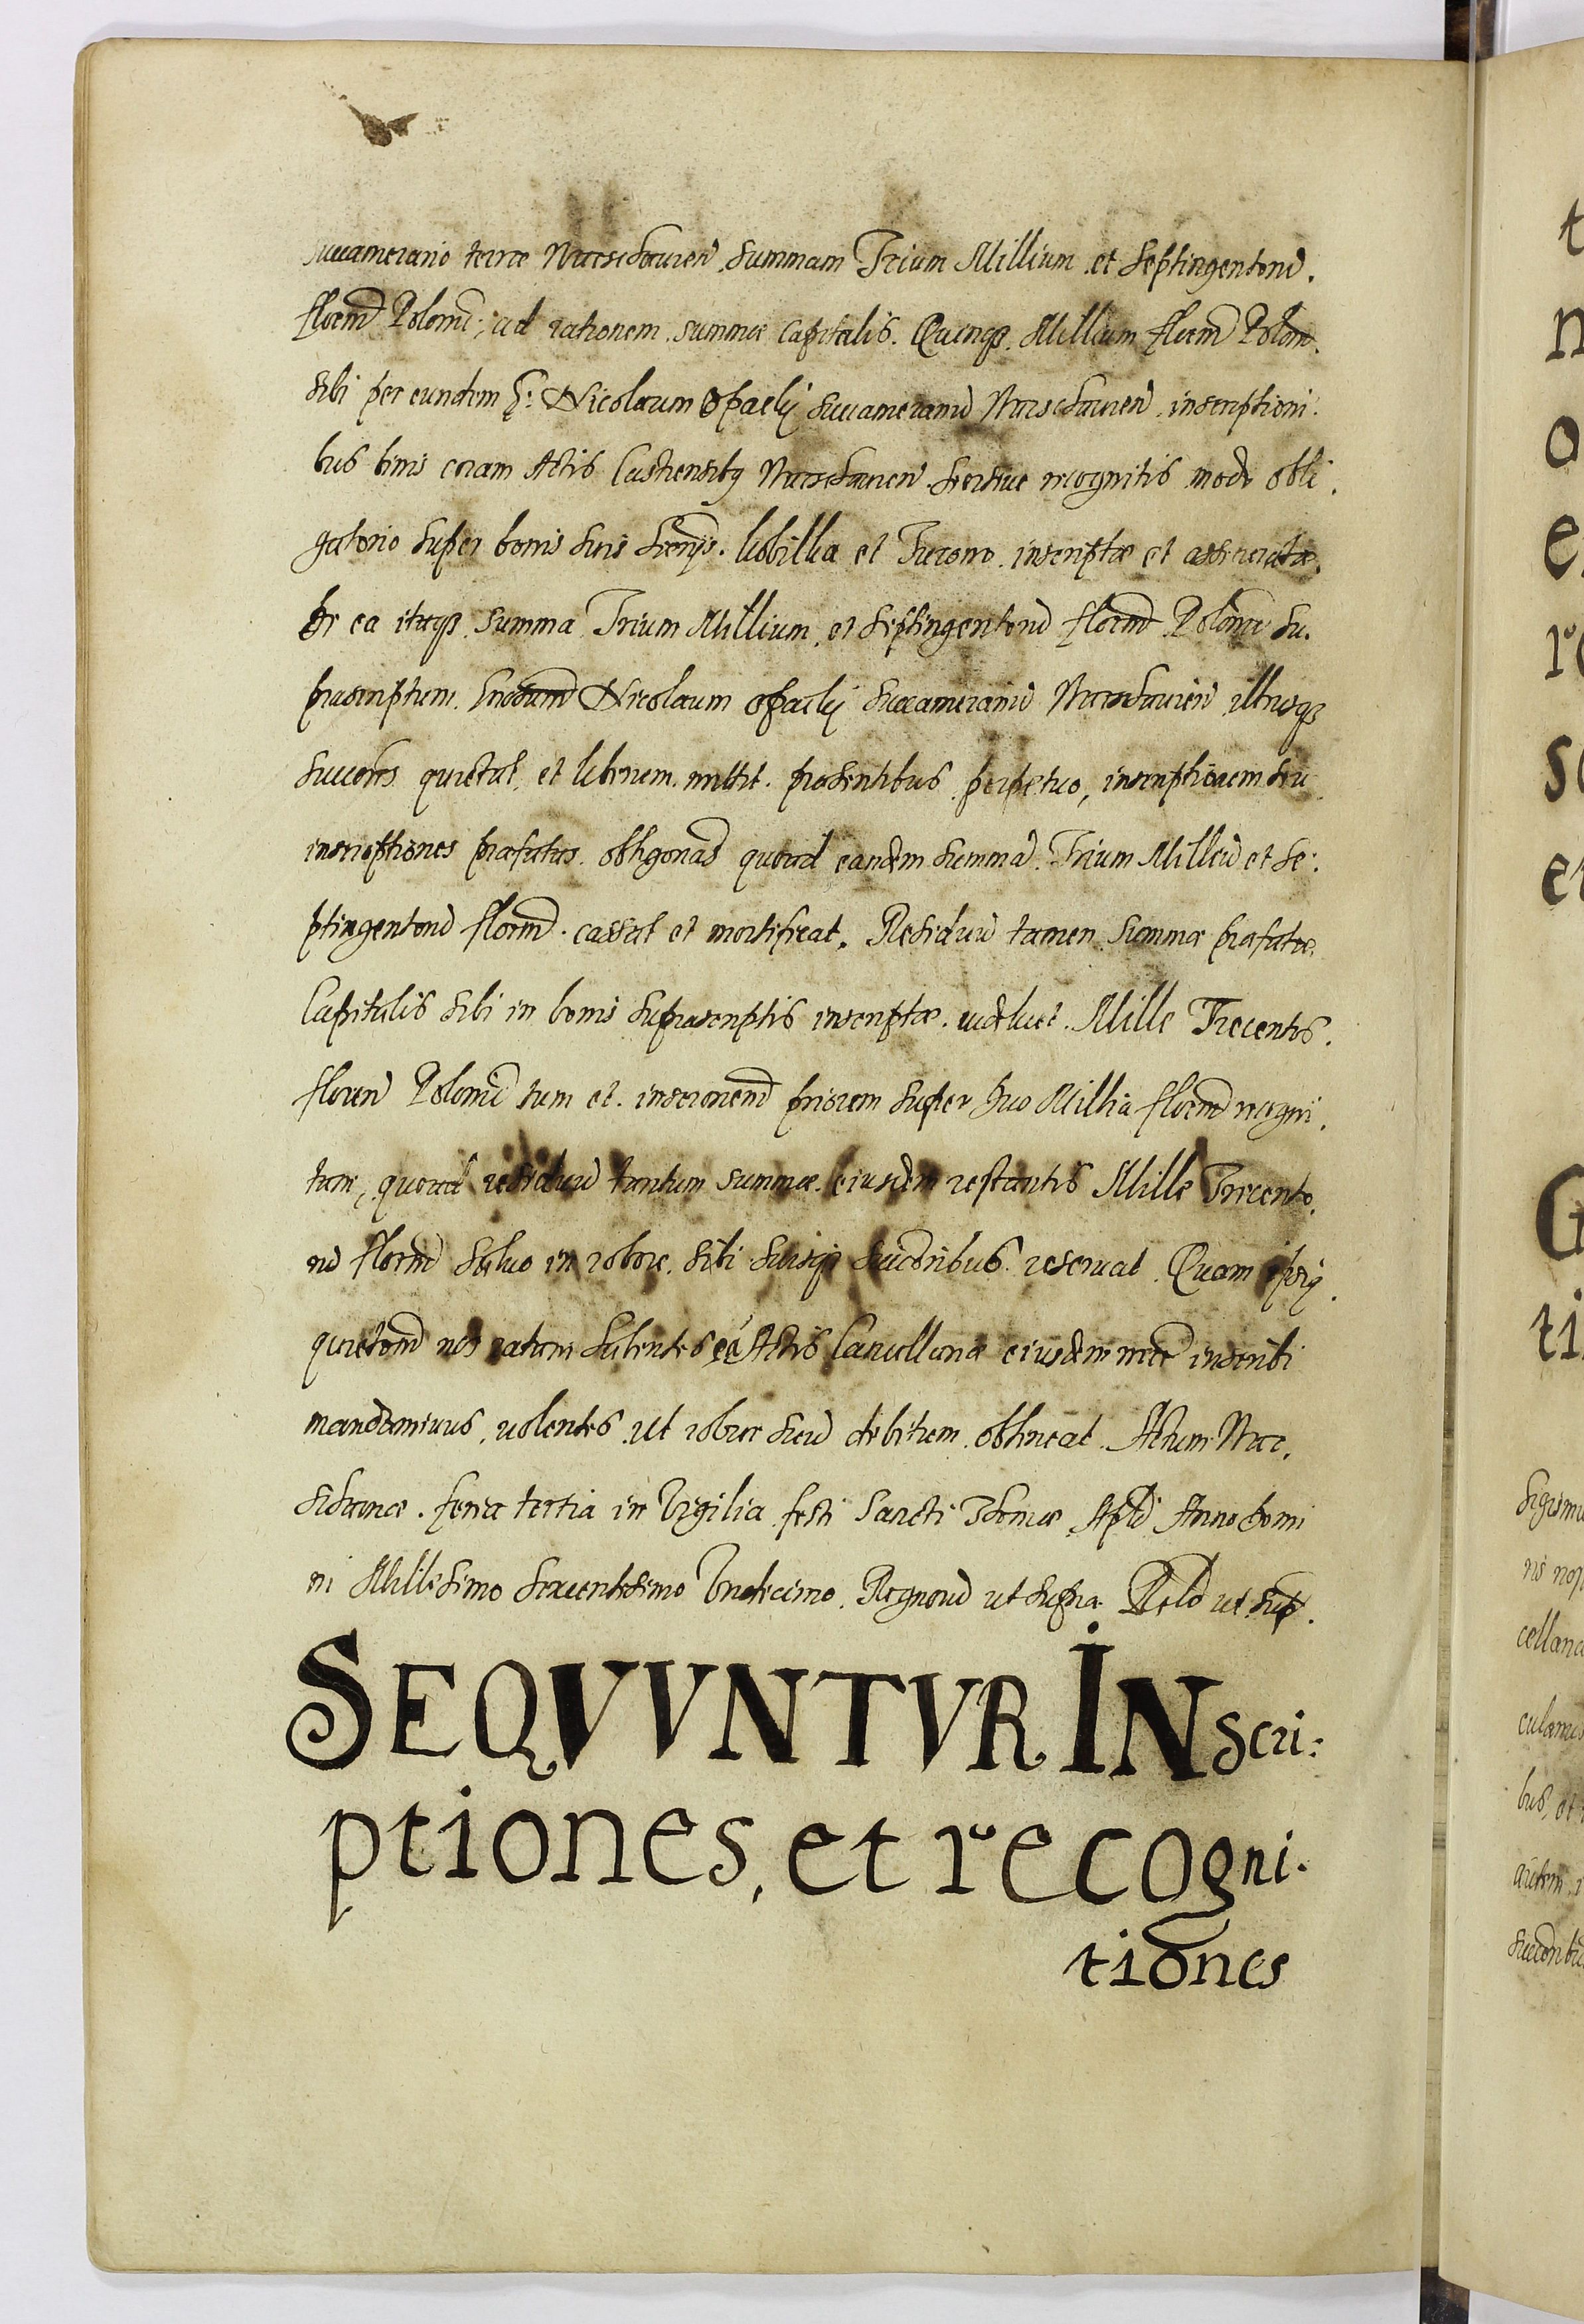 Succamerario terræ Warschauien̄. Summam Trium Millium et Septingentorū.
florenū Polonic̄. ad rationem summæ Capitalis. Quinqȝ. Millium floren̄ Polon̄.
sibi per eundem G: Nicolaum Opacky Succamerariū Warschauien̄. inscriptioni:
bus binis coram Actis Castrensibq Warschauien̄. recognitis modo obli.
gatorio super bonis suis et inscriptæ et assecuratæ.
De ea itaqȝ Summa Trium Millium et Septingentorū florenū Polonic̄ su.
prascriptum Nicolaum Opacky Succamerariū Warschauien̄ illiusqȝ
Succores quietat, et liberum mittit præsentibus perpetuo, inscriptionem seu
inscriptiones præfatas obligonas quoad eandem Summā Trium Milliū et Se:
ptingentorū florenū. cassat et mortificat. Residuū tamen Summæ præfatæ.
Capitalis sibi in bonis suprascriptis inscriptæ. videlicet. Mille Trecentos.
floren̄ Polonic̄ tum et inscrionem̄ priorem super Duo Millia florenū recogni.
tam, quoad residuū tantum summæ eiusdem restantis Mille Trecento.
rū florenū saluo in robore. sibi suisqȝ succoribus reseruat. Quam ipsiq
quietonem̄ nos ratam habentes eā Actis Cancellariæ eiusdem inscribi
mandauimus, volentes ut robur suū debitum obtineat. Actum War.
schauiæ. feria tertia in Vigilia festi Sancti Thomæ Aplī Anno Domi
ni Millesimo Sexcentesimo Vndecimo. Regnorū ut supra Relō ut sup̄.
SEQVVNTVR INscri:
ptiones, et recogni.
tiones